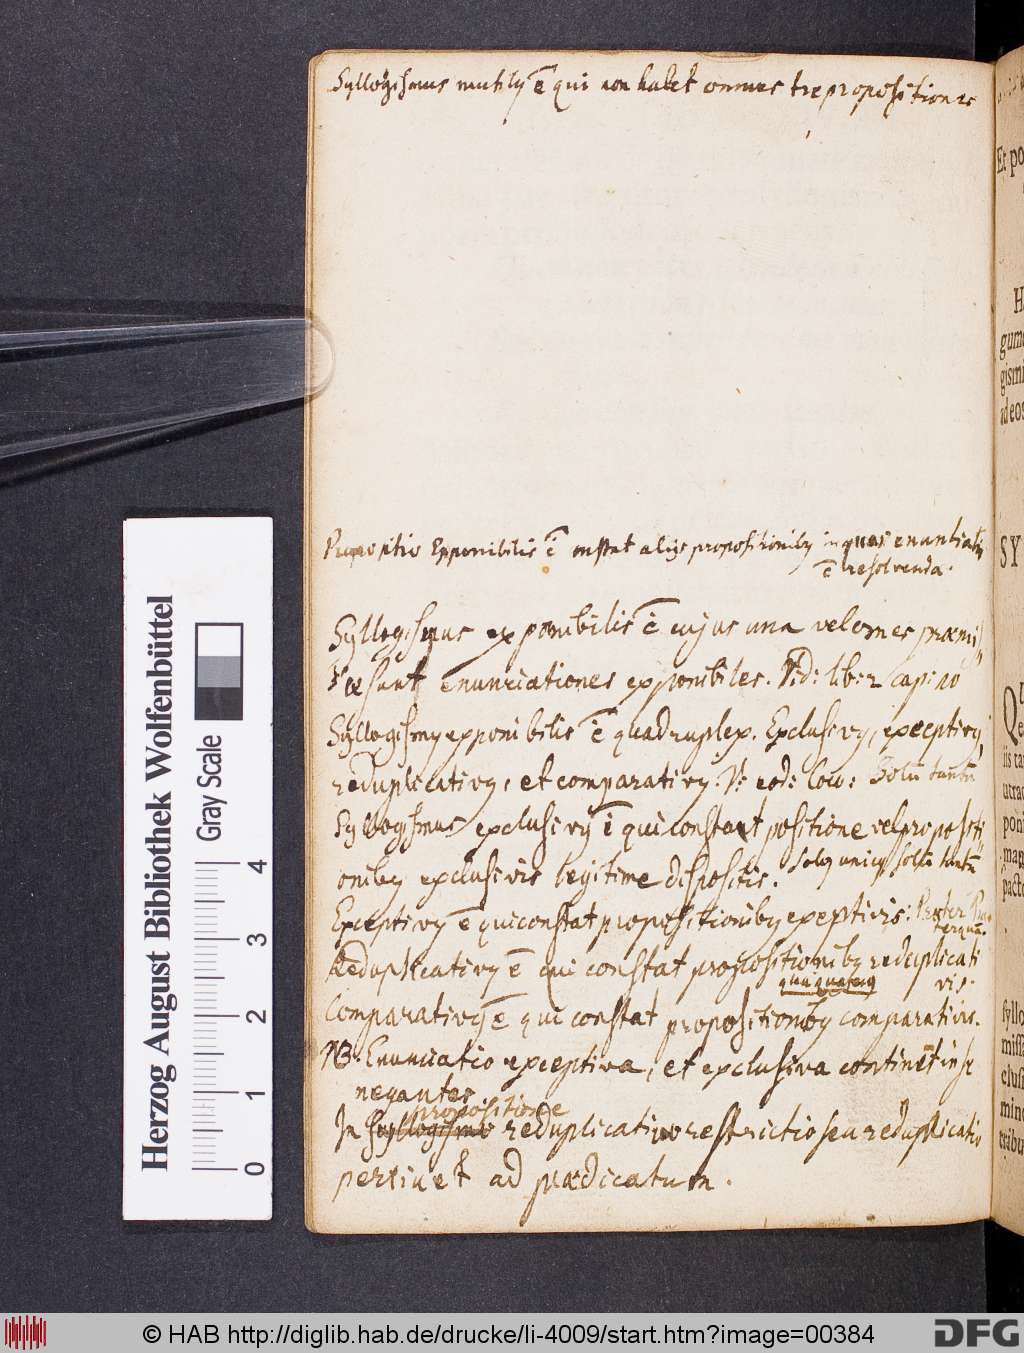 Syllogismus mutilꝰ ē qui non habet omnes tres propositiones
Propositio Exponibilis ē constat aliis propositionibꝰ in quas enuntiatio
ē resolvenda.
Syllogismus exponibilis ē cujus una vel omnes præmis
sæ sunt enunciationes exponibiles. Vid: lib: 2 cap: 10
Syllogismꝰ exponibilis ē quadruplex. Exclusivꝰ, exceptivꝰ,
reduplicativꝰ, et comparativꝰ. V: eod: loco: Solū tantū
Syllogismus exclusivꝰ ē qui constat positione vel propositi
onibꝰ exclusivis legitime dispositis. Solꝰ unicꝰ solū tantū
Exceptivꝰ ē qui constat propositionibꝰ exeptivis: Præter Præ
terquā.
Reduplicativꝰ ē qui constat propositionibꝰ reduplicati
vis.
Comparativꝰ ē qui constat propositionibꝰ comparativis.
NB. Enunciatio exceptiva, et exclusiva continēt in se
negantes
propositione
In syllogismo reduplicativo restrictio seu reduplicatio
pertinet ad prædicatum.
Et po
H
gume
gism
ad eos
SY
iis ta
utra
poni
pacto
syllo
miss
clus
mino
tribu
Herzog August Bibliothek Wolfenbüttel
Gray Scale
0 1 2 3 4
© HAB http://diglib.hab.de/drucke/li-4009/start.htm?image=00384
DFG